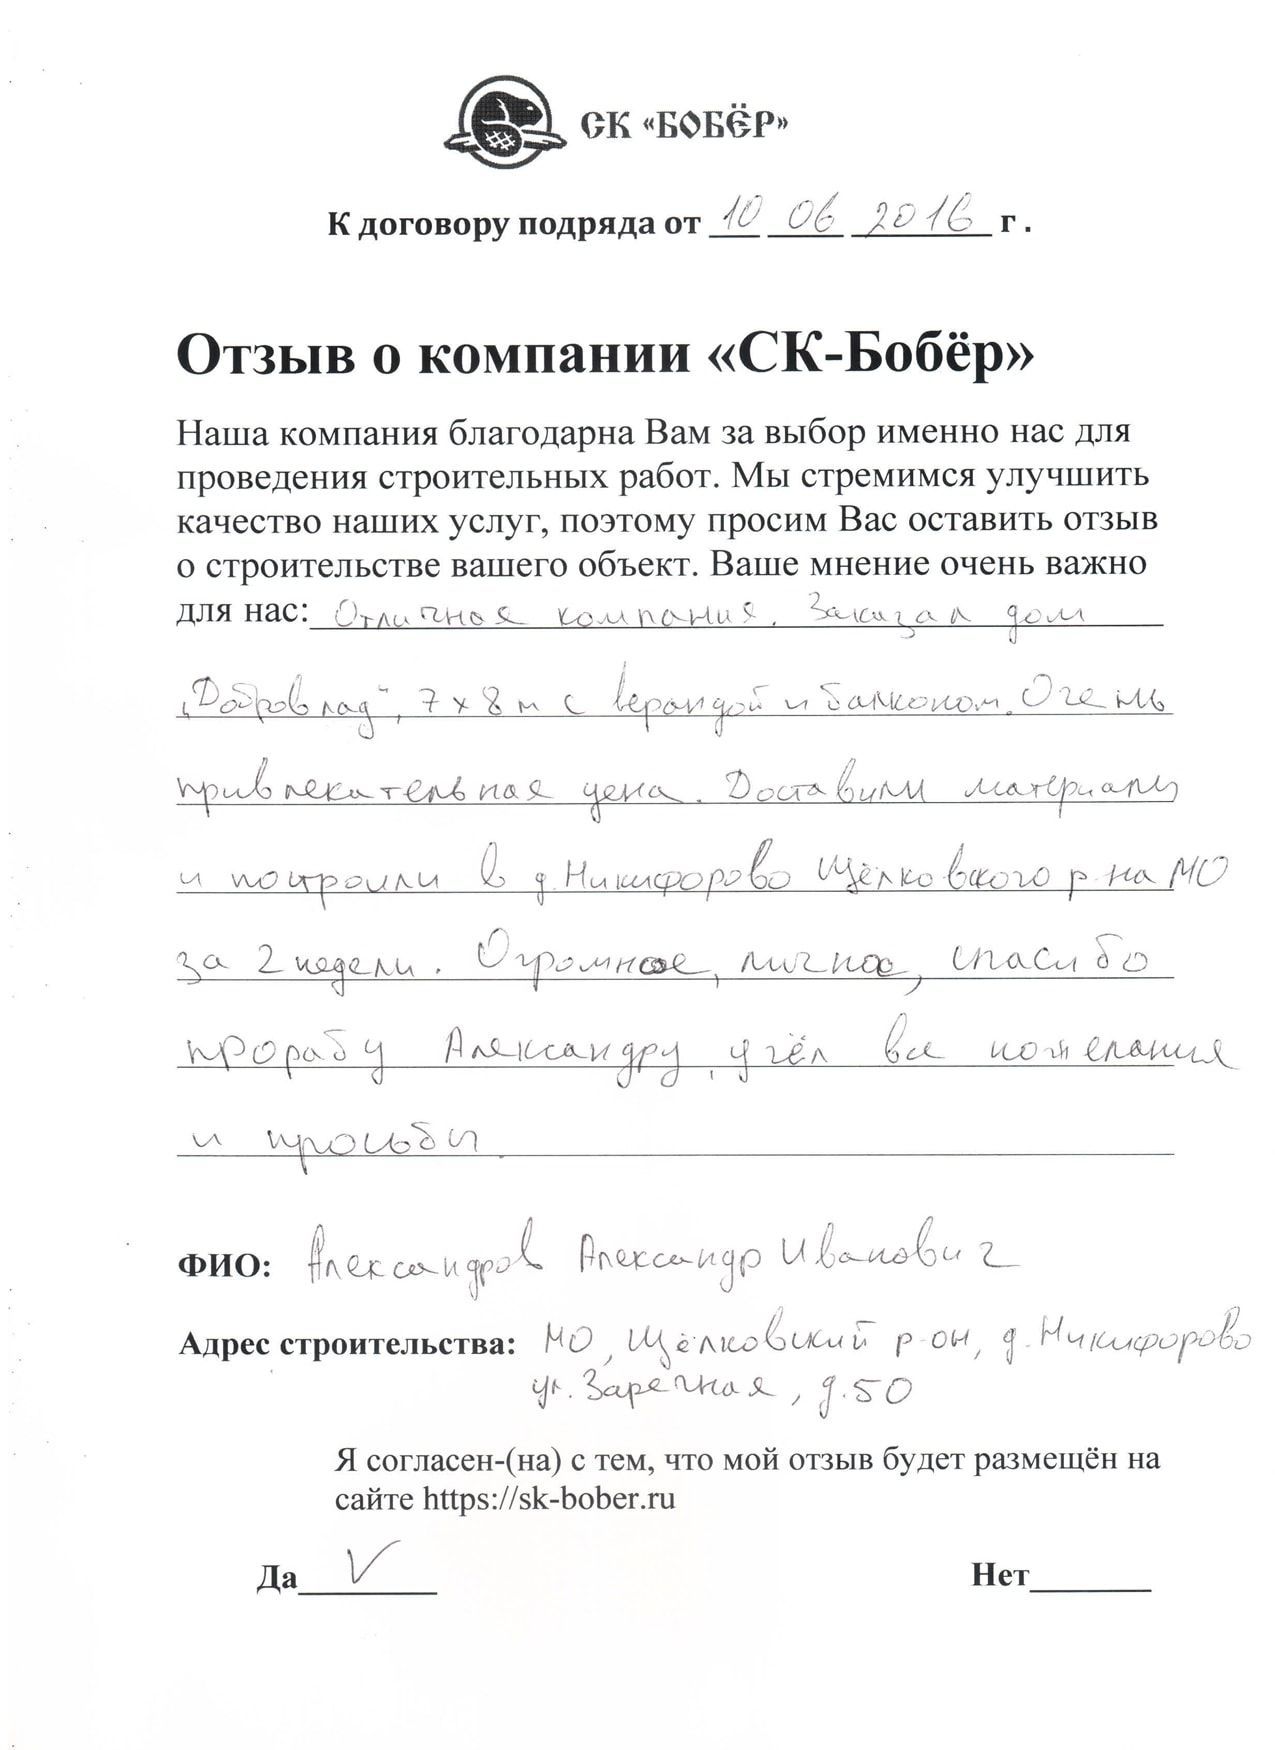 СК «БОБЁР»
К договору подряда от 10 06 2016 г .
Отзыв о компании «СК-Бобёр»
Наша компания благодарна Вам за выбор именно нас для
проведения строительных работ. Мы стремимся улучшить
качество наших услуг, поэтому просим Вас оставить отзыв
о строительстве вашего объект. Ваше мнение очень важно
для нас: Отличная компания. Заказал дом
„Добровлад", 7 х 8 м с верандой и балконом. Очень
привлекательная цена. Доставили материалы
и построили в д. Никифорово Щёлковского р-на МО
за 2 недели. Огромное, личное, спасибо
прорабу Александру, учёл все пожелания
и просьбы.
ФИО: Александров Александр Иванович
Адрес строительства: МО, Щёлковский р-он, д. Никифорово
ул. Заречная, д. 50
Я согласен-(на) с тем, что мой отзыв будет размещён на
сайте https://sk-bober.ru
Да V Нет